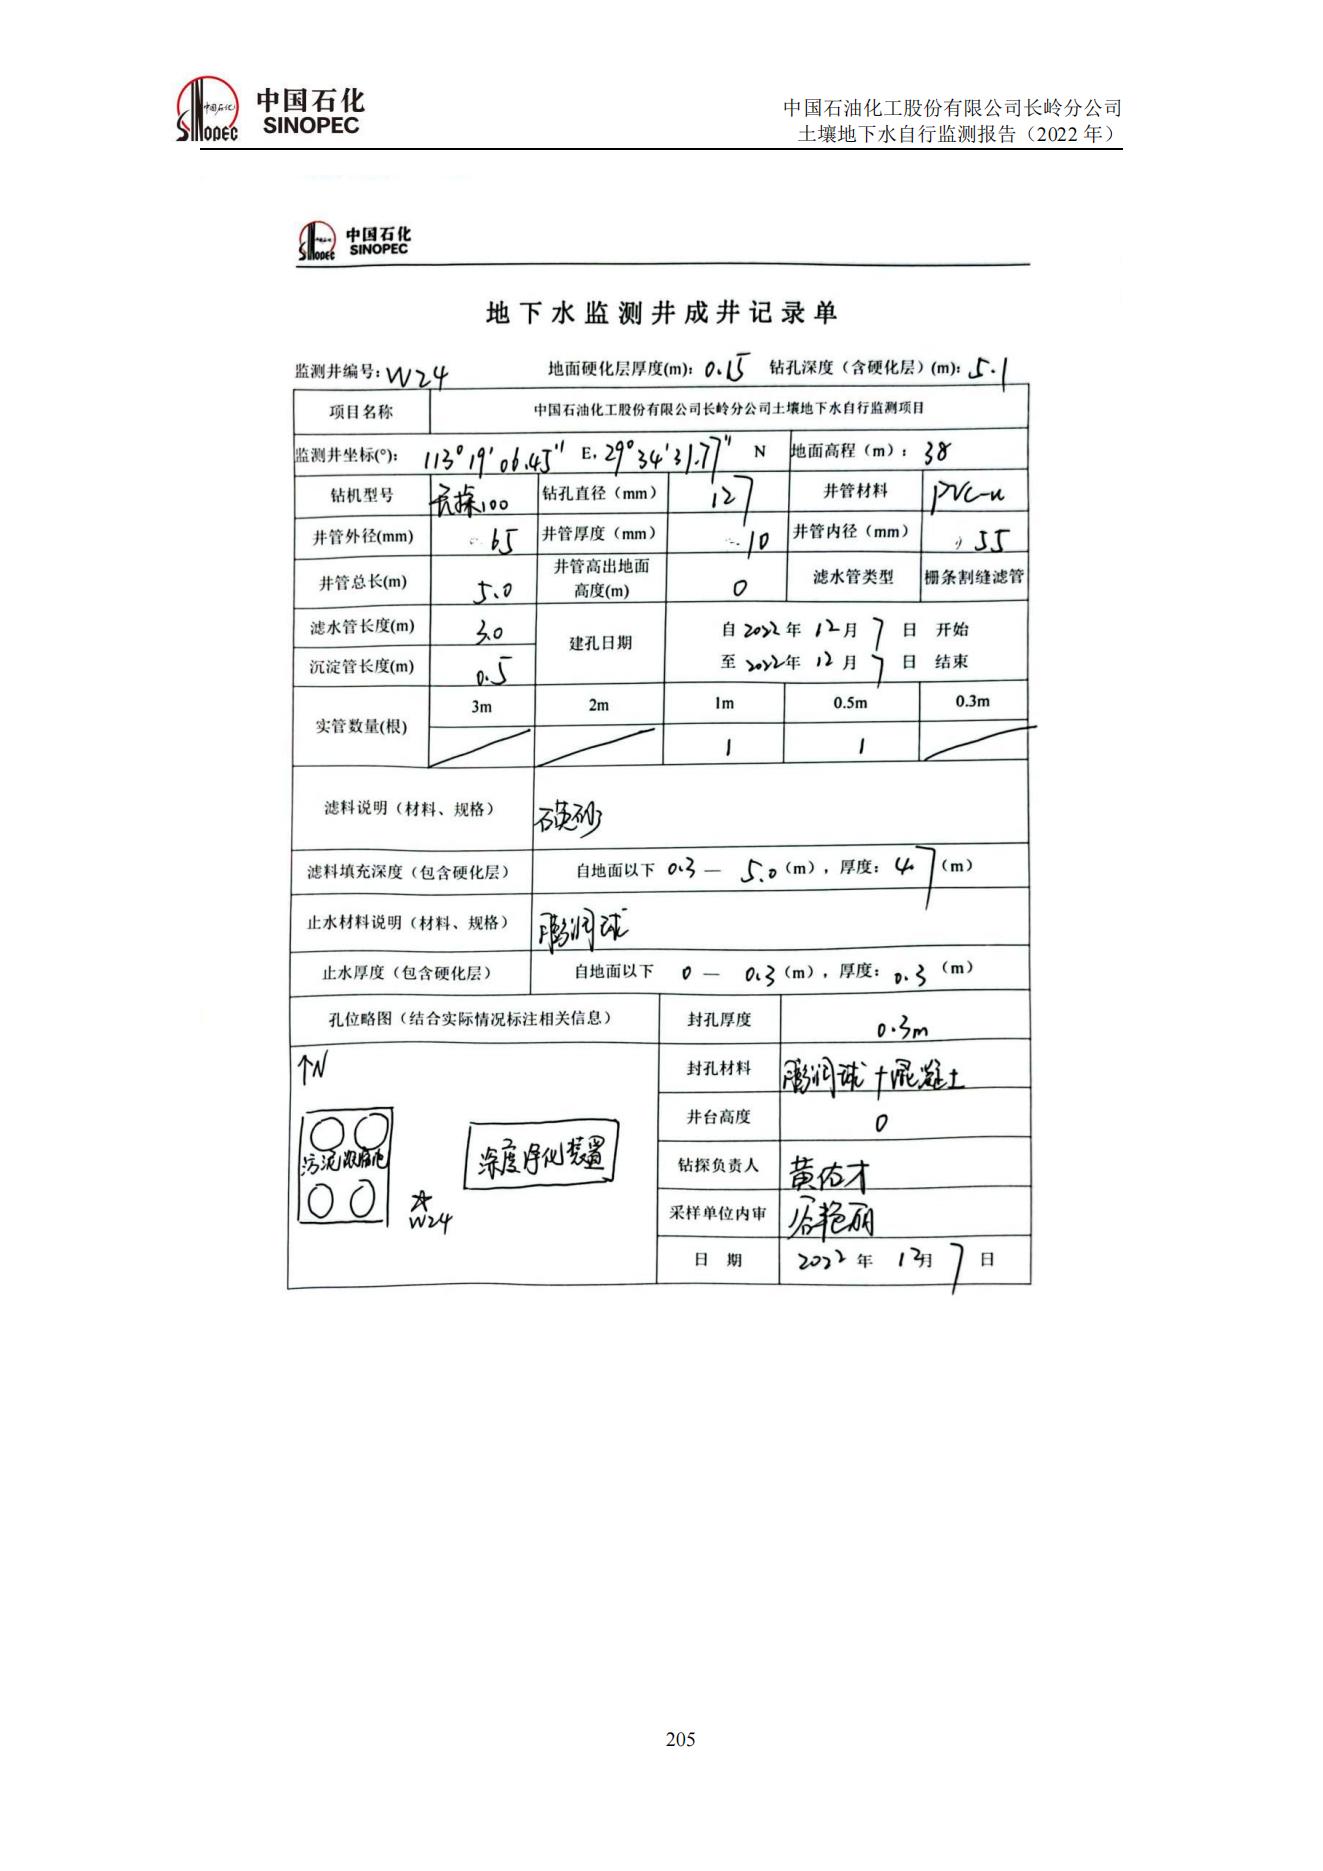 中国石化
SINOPEC
中国石油化工股份有限公司长岭分公司
土壤地下水自行监测报告（2022 年）
中国石化
SINOPEC
地下水监测井成井记录单
监测井编号：W24 地面硬化层厚度(m)：0.15 钻孔深度（含硬化层）(m)：5.1
项目名称 中国石油化工股份有限公司长岭分公司土壤地下水自行监测项目
监测井坐标(°)： 113°19′06.45″ E，29°34′31.77″ N 地面高程（m）： 38
钻机型号 100 钻孔直径（mm） 127 井管材料 PVC-u
井管外径(mm) 65 井管厚度（mm） 10 井管内径（mm） 55
井管总长(m) 5.0 井管高出地面高度(m) 0 滤水管类型 栅条割缝滤管
滤水管长度(m) 3.0 建孔日期 自 2022 年 12 月 7 日 开始
沉淀管长度(m) 0.5 至 2022 年 12 月 7 日 结束
实管数量(根) 3m 2m 1m 0.5m 0.3m
1 1
滤料说明（材料、规格） 石英砂
滤料填充深度（包含硬化层） 自地面以下 0.3 — 5.0（m），厚度：4.7（m）
止水材料说明（材料、规格） 膨润球
止水厚度（包含硬化层） 自地面以下 0 — 0.3（m），厚度：0.3（m）
孔位略图（结合实际情况标注相关信息） 封孔厚度 0.3m
↑N
封孔材料 膨润球+混凝土
井台高度 0
污泥浓缩池
深度净化装置
W24
钻探负责人 黄佑才
采样单位内审 谷艳丽
日 期 2022 年 12月 7 日
205